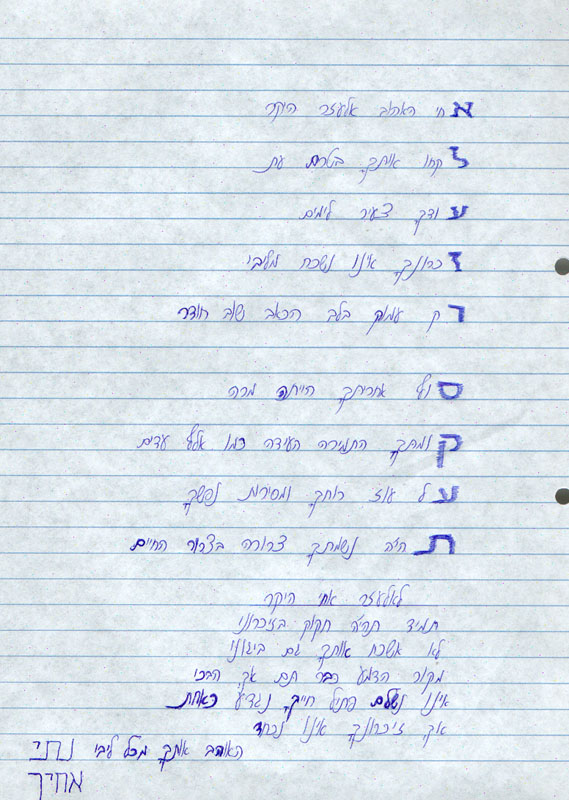 אחי האהוב אלעזר היקר
לקחו אותך בטרם עת
עודך צעיר לימים
זכרונך אינו נשכח מליבי
רק עמוק בלב הכאב שוב חודר
סוף אחריתך הייתה מרה
קומתך התמירה העידה כמו אלף עדים
על עוז רוחך ומסירות נפשך
תהיה נשמתך צרורה בצרור החיים
לאלעזר אחי היקר
תמיד תהיה חקוק בזיכרוני
לא אשכח אותך גם ביגוני
מקור הדמע כבר תם אך הבכי
אינו נשלם פתיל חייך נגדע כאחת
אך זיכרונך אינו נכחד
האוהב אותך מכל ליבי נתי
אחיך